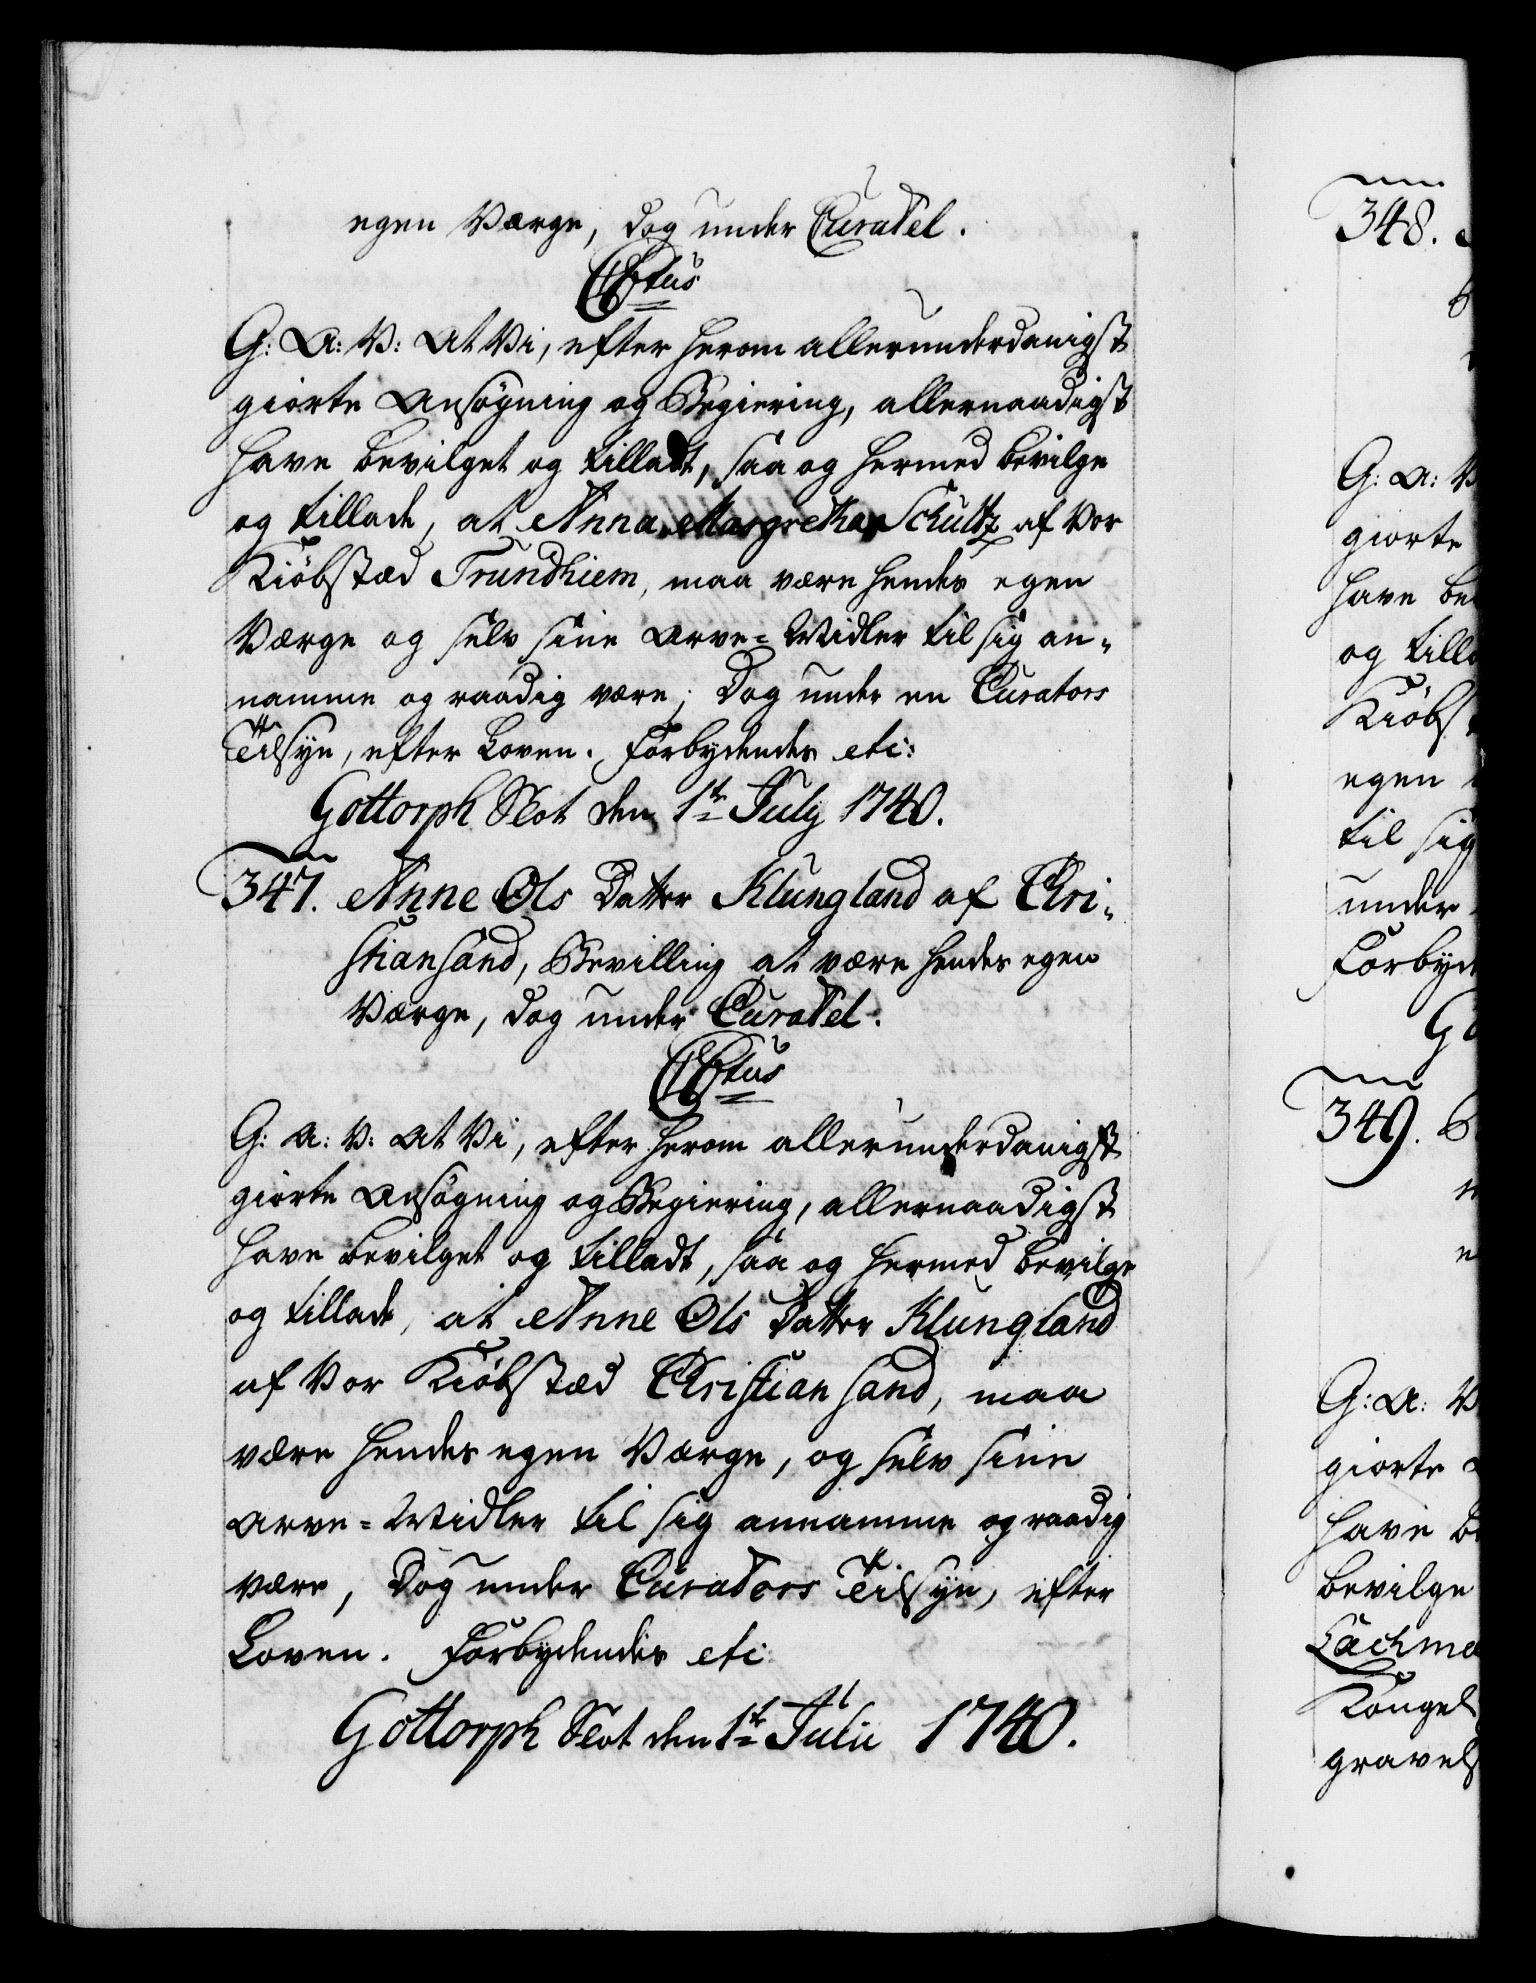 egen Værge, dog under Curatel.
CPtus
G: A: V: At Vi, efter herom allerunderdanigst
giorte Ansøgning og Begiering, allernaadigst
have bevilget og tilladt, saa og hermed bevilge
og tillade, at Anna Margretha Schultz af Vor
Kiøbstæd Trundhiem, maa være hendes egen
Værge og selv sine Arve-Midler til sig an-
namme og raadig være; Dog under en Curators
Tilsyn, efter Loven. Forbydendes etc:
Gottorph Slot den 1te July 1740.
347. Anne Ols Datter Klungland af Chri-
stiansand, Bevilling at være hendes egen
Værge, dog under Curatel.
CPtus
G: A: V: At Vi, efter herom allerunderdanigst
giorte Ansøgning og Begiering, allernaadigst
have bevilget og tilladt, saa og hermed bevilge
og tillade, at Anne Ols Datter Klungland
af Vor Kiøbstæd Christiansand, maa
være hendes egen Værge, og selv sine
Arve-Midler til sig annamme og raadig
være, Dog under Curators Tilsyn, efter
Loven. Forbydendes etc:
Gottorph Slot den 1te Julii 1740.
348.
G: A: V
giorte
have be
og tilla
Kiøbst
egen
til sig
under
Forbyd
Go
349.
G: A: V
giorte
have be
bevilge
Lachma
Kongel
gravels